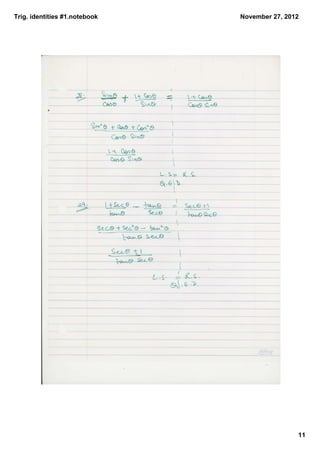 Trig. identities #1.notebook
November 27, 2012
Sinθ/Cosθ + 1+Cosθ/Sinθ = 1+Cosθ/Cosθ Sinθ
Sin²θ + Cosθ + Cos²θ
Cosθ Sinθ
1+ Cosθ
Cosθ Sinθ
L.S = R.S.
Q.E.D.
29. 1+Secθ/tanθ − tanθ/Secθ = Secθ+1/tanθ Secθ
Secθ + Sec²θ − tan²θ
tanθ Secθ
Secθ +1
tanθ Secθ
L.S. = R.S.
Q.E.D.
11